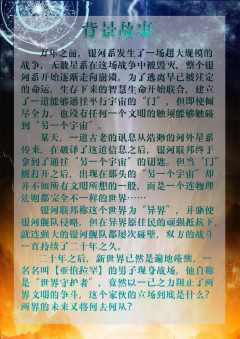 背景故事
万年之前，银河系发生了一场超大规模的
战争，无数星系在这场战争中被毁灭，整个银
河系开始逐渐走向崩溃，为了逃离早已被注定
的命运，生存下来的智慧生命开始联合，建立
了一道能够通往平行宇宙的“门”，但即便倾
尽全力，也没有任何一个文明的触须能够触碰
到“另一个宇宙”。
某天，一道古老的讯息从浩渺的河外星系
传来，在破译了这道信息之后，银河联邦终于
拿到了通往“另一个宇宙”的钥匙，但当“门”
被打开之后，出现在那头的“另一个宇宙”却
并不如所有文明所想的一般，而是一个连物理
法则都完全不一样的世界……
银河联邦称这个世界为“异界”，并驱使
银河舰队侵略，但在异界原住民的顽强抵抗下，
就连强大的银河舰队都屡次碰壁，双方的战斗
一直持续了二十年之久。
二十年之后，新世界已然是遍地疮痍，一
名名叫【亚伯拉罕】的男子现身战场，他自称
是“世界守护者”，竟然以一己之力阻止了两
界文明的争斗，这个家伙的立场到底是什么？
两界的未来又将何去何从？